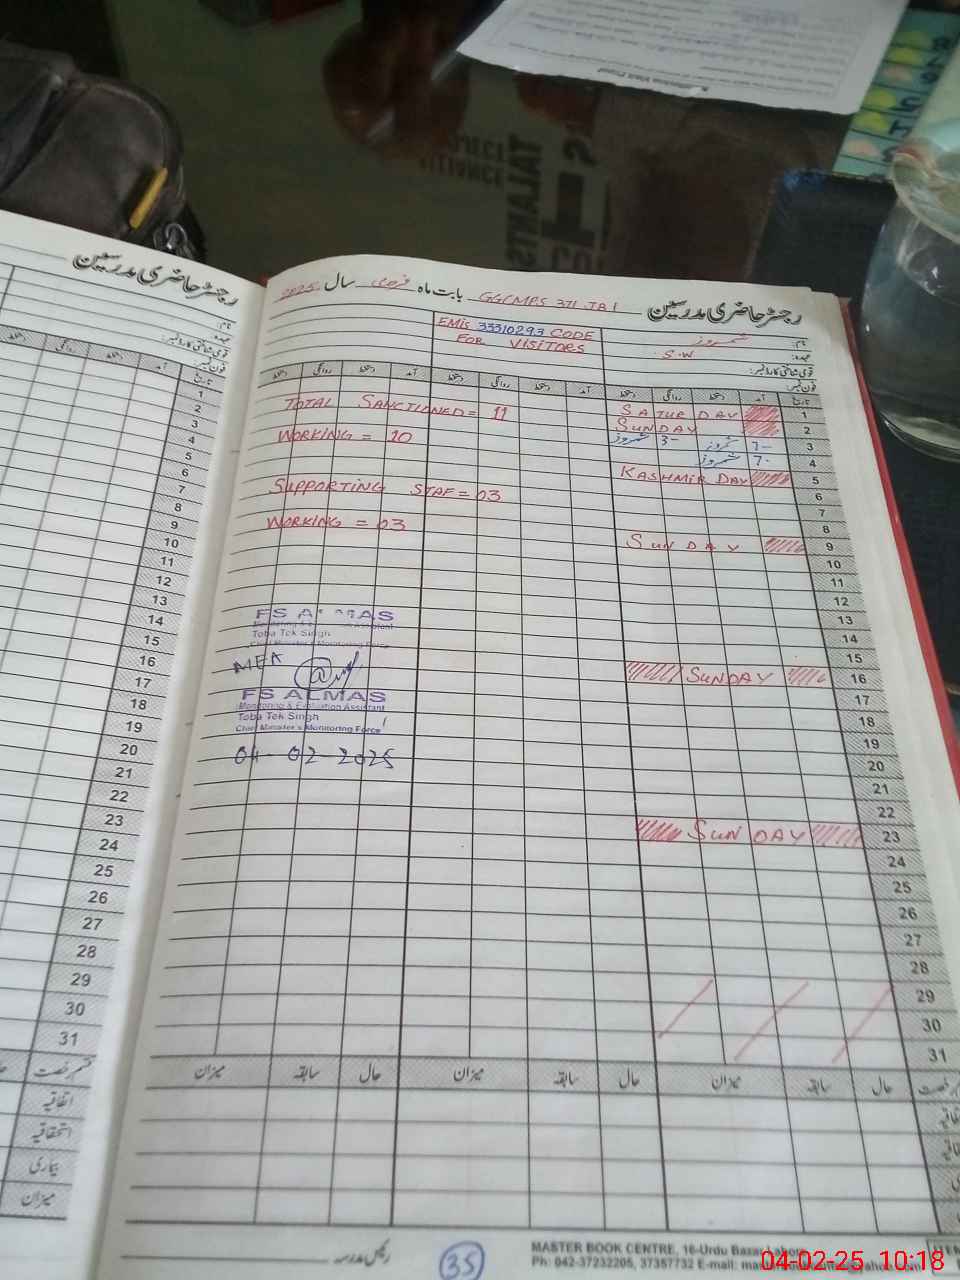 رجسٹر حاضری مدرسین
رجسٹر حاضری مدرسین GGCMPS 371 JB I بابت ماہ فروری سال 2025
نام:
عہدہ:
قومی شناختی کارڈ نمبر:
فون نمبر:
نام: شمروز
عہدہ: S.W
قومی شناختی کارڈ نمبر:
فون نمبر:
EMIS 33310293 CODE
FOR VISITORS
تاریخ آمد دستخط روانگی دستخط آمد دستخط روانگی دستخط آمد دستخط روانگی دستخط
TOTAL SANCTIONED = 11
WORKING = 10
SUPPORTING STAF = 03
WORKING = 03
1 SATURDAY
2 SUNDAY
3 7- شمروز 3- شمروز
4 7- شمروز
5 KASHMIR DAY
6
7
8
9 SUNDAY
10
11
12
13
14
15
16 SUNDAY
17
18
19
20
21
22
23 SUNDAY
24
25
26
27
28
29
30
31
FS ALMAS
Toba Tek Singh
Chief Minister's Monitoring Force
MEA
FS ALMAS
Monitoring & Evaluation Assistant
Toba Tek Singh
Chief Minister's Monitoring Force
04-02-2025
تاریخ آمد دستخط روانگی دستخط
1
2
3
4
5
6
7
8
9
10
11
12
13
14
15
16
17
18
19
20
21
22
23
24
25
26
27
28
29
30
31
قسم رخصت
اتفاقیہ
استحقاقیہ
بیماری
میزان
حال سابقہ میزان حال سابقہ میزان حال سابقہ میزان
رئیس مدرسہ
35
MASTER BOOK CENTRE, 16-Urdu Bazar Lahore
Ph: 042-37232205, 37357732 E-mail:
04-02-25 10:18